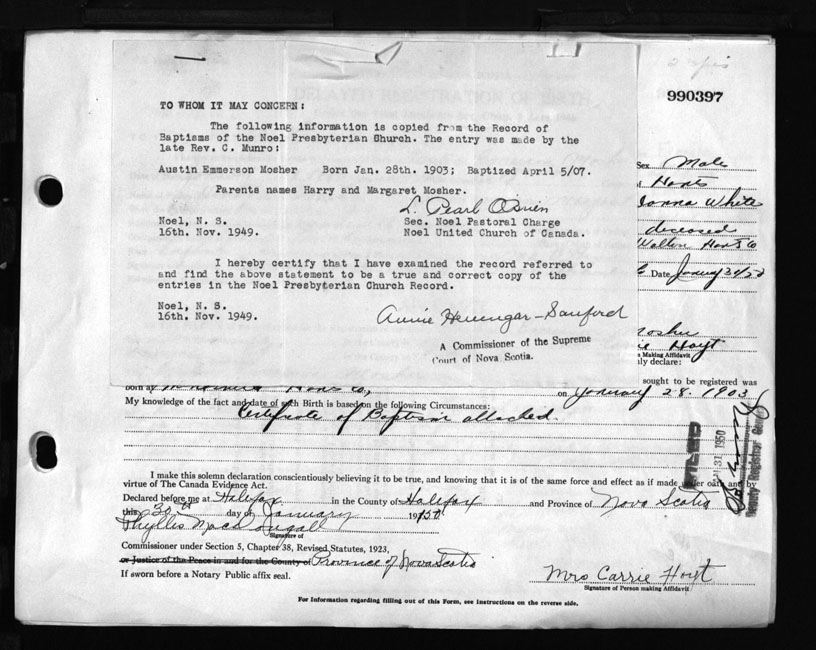 990397
TO WHOM IT MAY CONCERN:
The following information is copied from the Record of
Baptisms of the Noel Presbyterian Church. The entry was made by the
late Rev. C. Munro:
Austin Emmerson Mosher Born Jan. 28th. 1903; Baptized April 5/07.
Parents names Harry and Margaret Mosher.
L. Pearl O'Brien
Noel, N. S. Sec. Noel Pastoral Charge
16th. Nov. 1949. Noel United Church of Canada.
I hereby certify that I have examined the record referred to
and find the above statement to be a true and correct copy of the
entries in the Noel Presbyterian Church Record.
Noel, N. S.
16th. Nov. 1949.
Annie Hennigar-Sanford
A Commissioner of the Supreme
Court of Nova Scotia.
Sex Male
Hants
White
deceased
Walton Hants Co
Date
Hoyt
Making Affidavit
declare:
sought to be registered was
born at Hants Co, on January 28. 1903
My knowledge of the fact and date of such Birth is based on the following Circumstances:
Certificate of Baptism attached.
31 1950
Deputy Registrar
I make this solemn declaration conscientiously believing it to be true, and knowing that it is of the same force and effect as if made under oath and by
virtue of The Canada Evidence Act.
Declared before me at Halifax in the County of Halifax and Province of Nova Scotia
this 30th day of January 1950
Phyllis MacDougall
Signature of
Commissioner under Section 5, Chapter 38, Revised Statutes, 1923,
or Justice of the Peace in and for the County of Province of Nova Scotia
If sworn before a Notary Public affix seal.
Mrs Carrie Hoyt
Signature of Person making Affidavit
For Information regarding filling out of this Form, see Instructions on the reverse side.